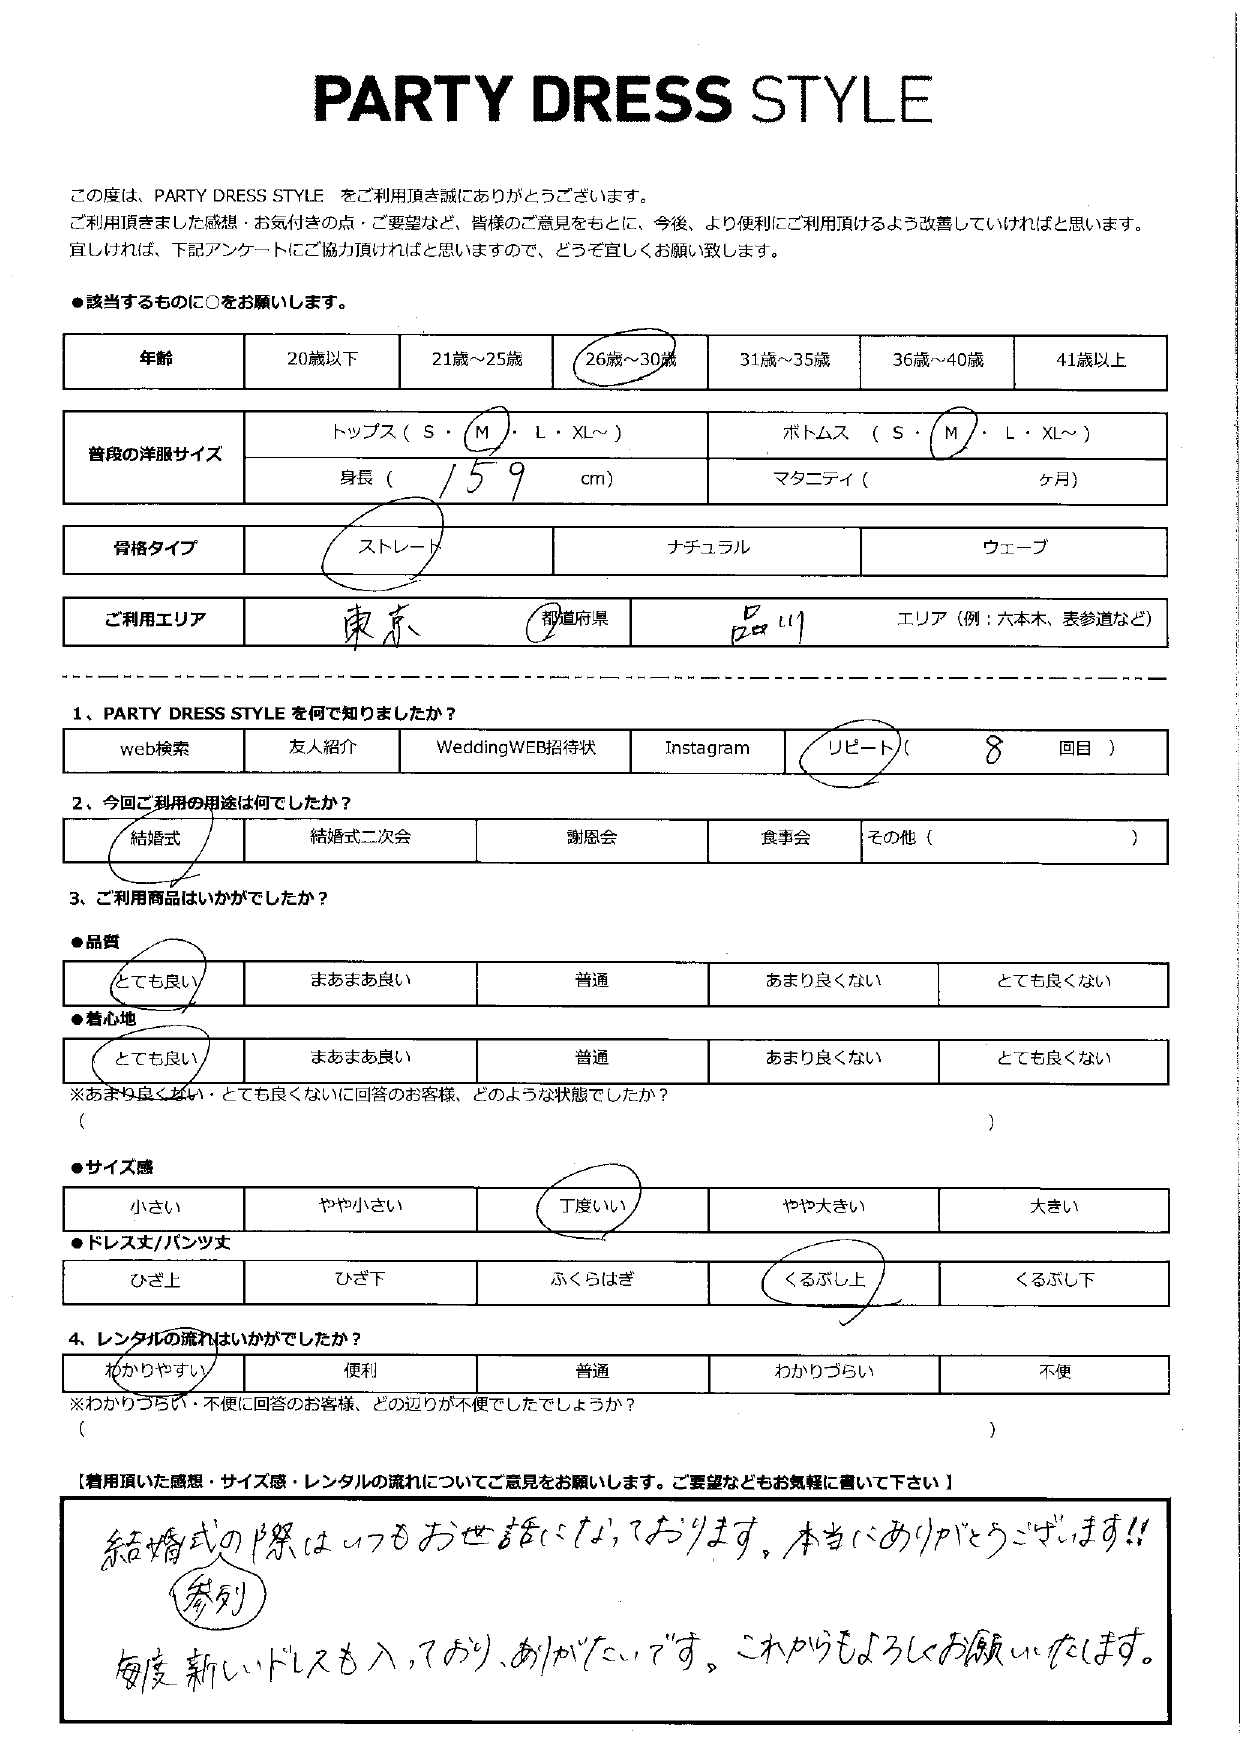 PARTY DRESS STYLE
この度は、PARTY DRESS STYLE をご利用頂き誠にありがとうございます。
ご利用頂きました感想・お気付きの点・ご要望など、皆様のご意見をもとに、今後、より便利にご利用頂けるよう改善していければと思います。
宜しければ、下記アンケートにご協力頂ければと思いますので、どうぞ宜しくお願い致します。
●該当するものに○をお願いします。
年齢 20歳以下 21歳～25歳 26歳～30歳 31歳～35歳 36歳～40歳 41歳以上
普段の洋服サイズ トップス ( S ・ M ・ L ・ XL～ ) ボトムス ( S ・ M ・ L ・ XL～ )
身長 ( 159 cm) マタニティ ( ヶ月)
骨格タイプ ストレート ナチュラル ウェーブ
ご利用エリア 東京 都道府県 品川 エリア（例：六本木、表参道など）
1、PARTY DRESS STYLE を何で知りましたか？
web検索 友人紹介 WeddingWEB招待状 Instagram リピート ( 8 回目 )
2、今回ご利用の用途は何でしたか？
結婚式 結婚式二次会 謝恩会 食事会 その他 ( )
3、ご利用商品はいかがでしたか？
●品質
とても良い まあまあ良い 普通 あまり良くない とても良くない
●着心地
とても良い まあまあ良い 普通 あまり良くない とても良くない
※あまり良くない・とても良くないに回答のお客様、どのような状態でしたか？
( )
●サイズ感
小さい やや小さい 丁度いい やや大きい 大きい
●ドレス丈/パンツ丈
ひざ上 ひざ下 ふくらはぎ くるぶし上 くるぶし下
4、レンタルの流れはいかがでしたか？
わかりやすい 便利 普通 わかりづらい 不便
※わかりづらい・不便に回答のお客様、どの辺りが不便でしたでしょうか？
( )
【着用頂いた感想・サイズ感・レンタルの流れについてご意見をお願いします。ご要望などもお気軽に書いて下さい 】
結婚式の際はいつもお世話になっております。本当にありがとうございます!!
参列
毎度新しいドレスも入っており、ありがたいです。これからもよろしくお願いいたします。